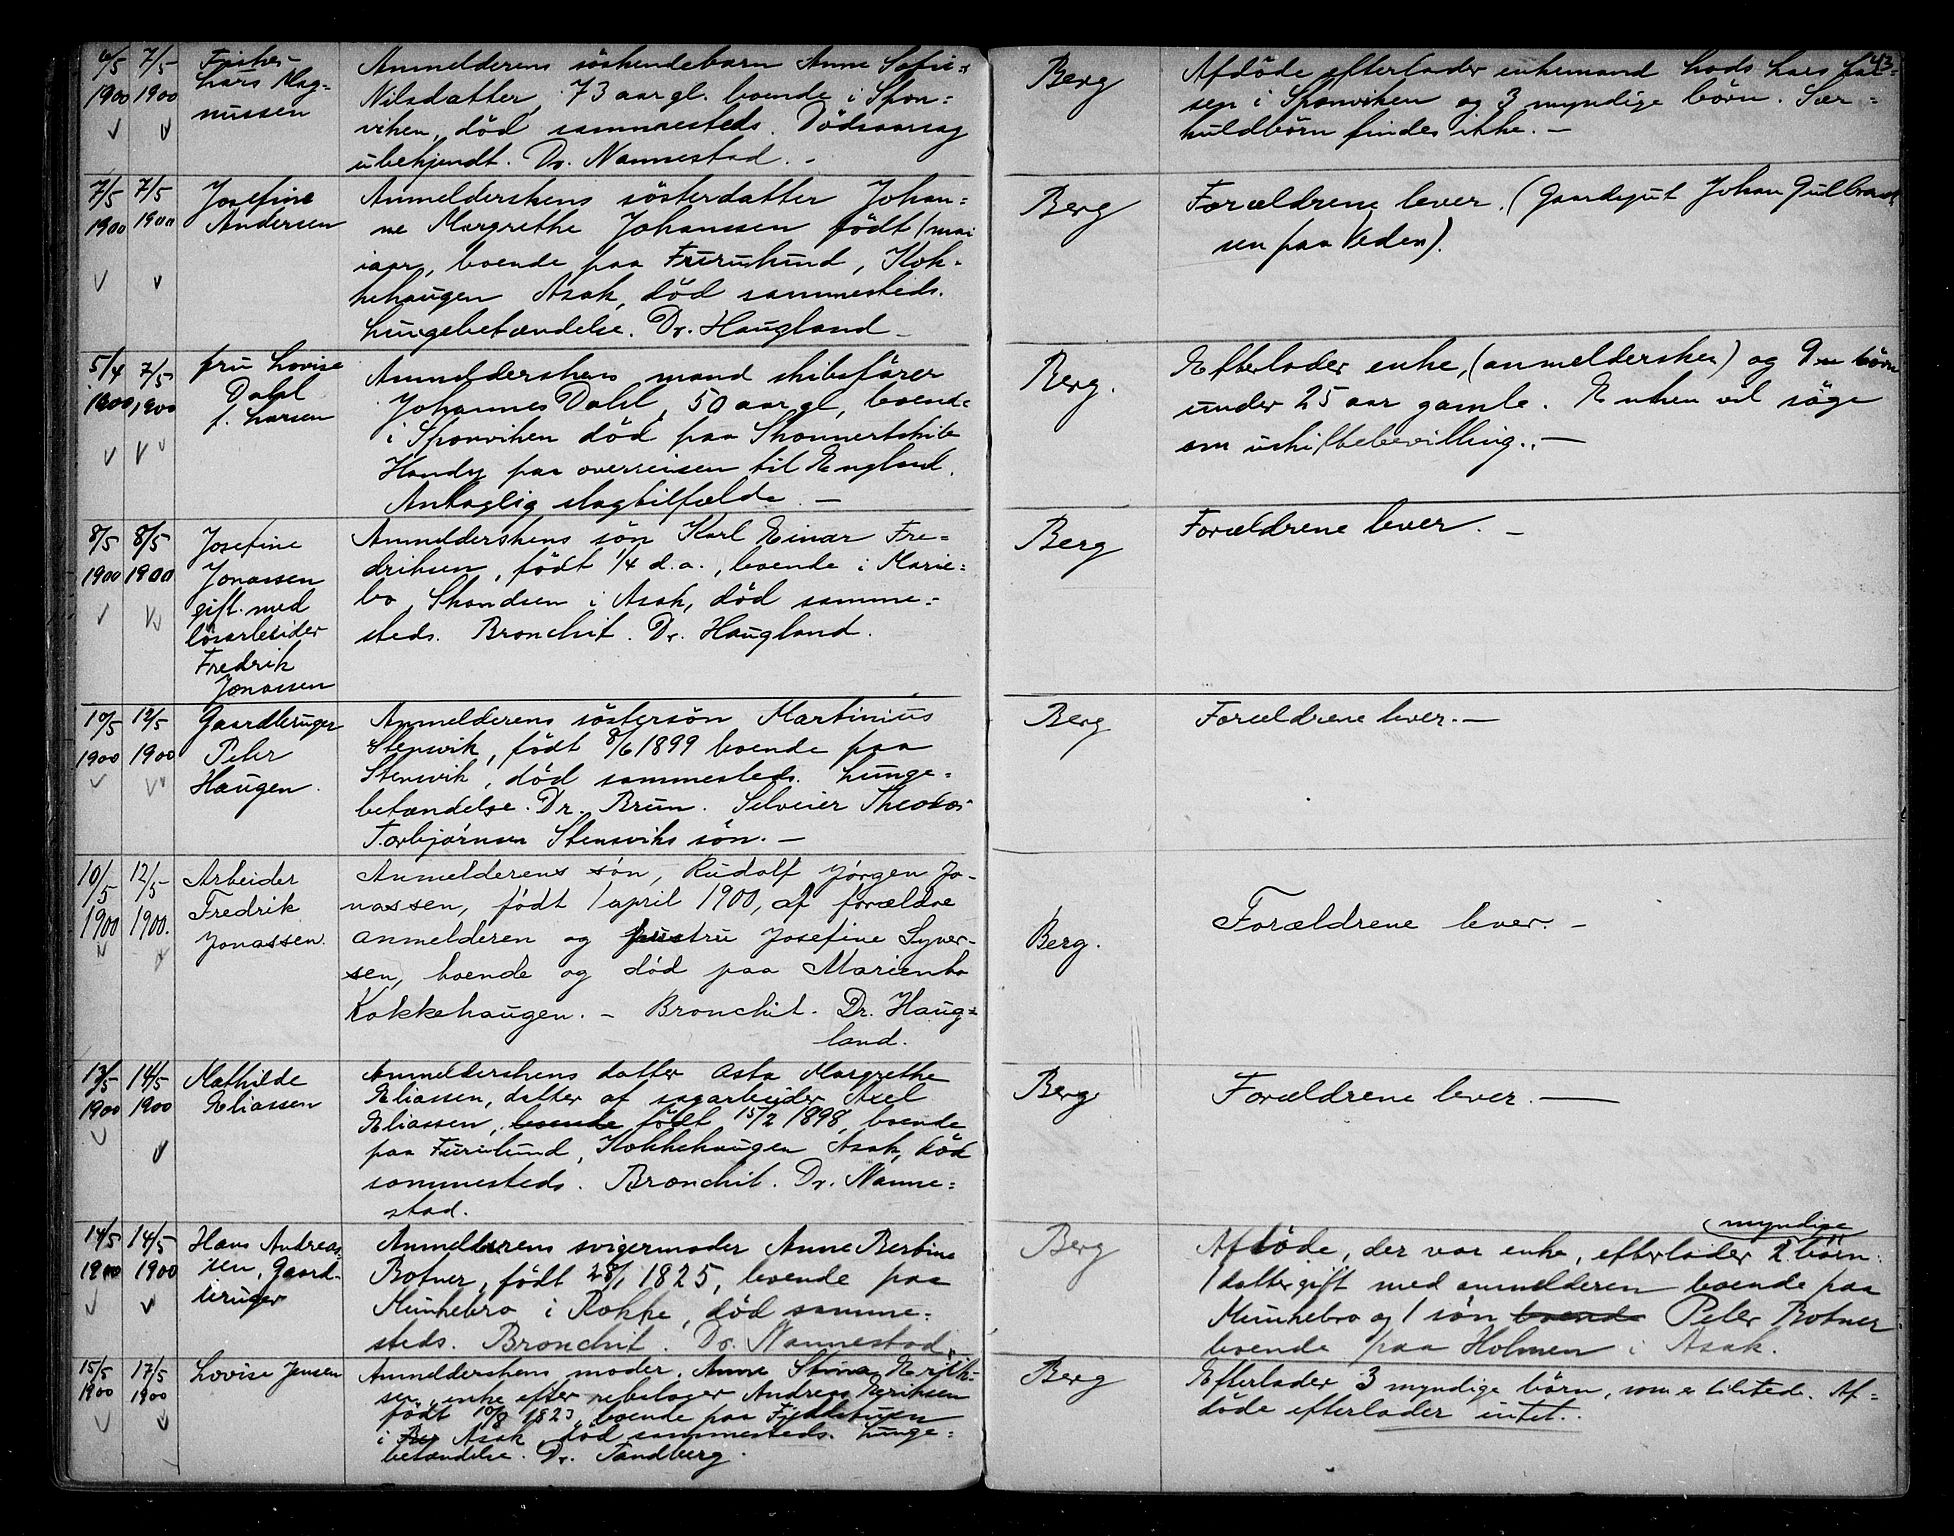 43
6/5 7/5 Fisker
1900 1900 Lars Mag-
nussen
Anmelderens söskendebarn Anne Sofie
Nilsdatter, 73 aar gl. boende i Spon-
viken, död sammesteds. Dödsaarsag
ubekjendt. Dr. Nannestad. -
Berg
Afdöde efterlader enkemand Lars
sen i Sponviken og 3 myndige börn. Sær-
kuldbörn findes ikke. -
7/5 7/5 Josefine
1900 1900 Andersen
Anmelderskens sösterdatter Johan-
ne Margrethe Johanssen födt 1 mai
iaar, boende paa Furulund, Kok-
kehaugen Asak, död sammesteds.
Lungebetændelse. Dr. Haugland -
Berg
Forældrene lever. (Gaardsgut Johan Gulbrand
sen paa Veden).
5/4 7/5 Fru Lovise
1900 1900 Dahl
f. Larsen
Anmelderskens mand skibsförer
Johannes Dahl, 50 aar gl, boende
i Sponviken död paa Skonnertskib
Handy paa overreisen til England.
Antaglig slagtilfælde. -
Berg.
Efterlader enke, (anmeldersken) og 9 börn
under 25 aar gamle. Enken vil söge
om uskiftebevilling. -
8/5 8/5 Josefine
1900 1900 Jonassen
gift med
lösarbeider
Fredrik
Jonassen
Anmelderskens sön Karl Einar Fre-
driksen, födt 1/4 d.a., boende i Marie-
bo, Skandsen i Asak, död samme-
steds. Bronchit. Dr. Haugland.
Berg
Forældrene lever. -
10/5 12/5 Gaardbruger
1900 1900 Peter
Haugen.
Anmelderens søstersøn Martinius
Stensvik, födt 8/6 1899 boende paa
Stensvik, död sammesteds. Lunge-
betændelse. Dr. Brun. Selveier Theodor
Torbjörnsen Stensviks sön. -
Berg
Forældrene lever. -
10/5 12/5 Arbeider
1900 1900. Fredrik
Jonassen.
Anmelderens søn, Rudolf Jørgen Jo-
nassen, født 1 april 1900, af forældre
anmelderen og hustru Josefine Syver-
sen, boende og død paa Marienbo
Kokkehaugen. - Bronchit. Dr. Haug-
land.
Berg.
Forældrene lever. -
13/5 14/5 Mathilde
1900 1900 Eliassen
Anmelderskens datter Asta Margrethe
Eliassen, datter af sagarbeider Axel
Eliassen, boende födt 15/2 1898, boende
paa Furulund, Kokkehaugen Asak, död
sammesteds. Bronchit. Dr. Nanne-
stad.
Berg
Forældrene lever. -
14/5 14/5 Hans Andreas-
1900 1900 sen, Gaard-
bruger
Anmelderens svigermoder Anne Bertine
Botner, födt 28/1 1825, boende paa
Munkebro i Rokke, död samme-
steds. Bronchit. Dr. Nannestad.
Berg
myndige
Afdöde, der var enke, efterlader 2 börn.
1 datter gift med anmelderen boende paa
Munkebro og 1 sön boende Peter Botner
boende paa Holmen i Asak.
15/5 17/5 Lovise Jensen
1900 1900
Anmelderskens moder Anne Stina Erik-
sen, enke efter rebslager Andreas Eriksen
födt 10/8 1823, boende paa Fjeldstuen
i Ber Asak, död sammesteds. Lunge-
betændelse. Dr. Tandberg.
Berg
Efterlader 3 myndige börn, som er tilsted. Af-
döde efterlader intet.